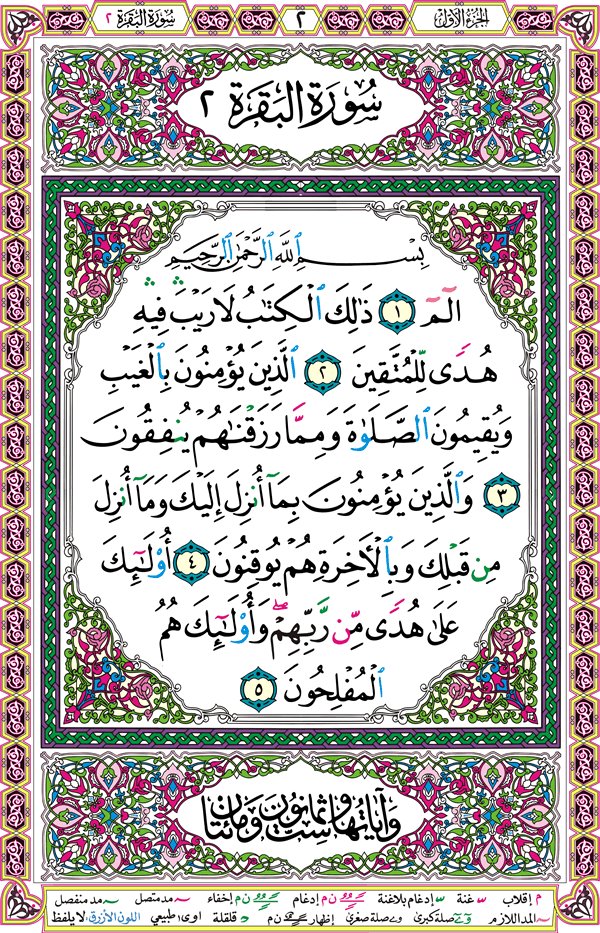 الجزء الأول
٢
سورة البقرة ٢
سُورَةُ البَقَرَةِ ٢
بِسْمِ ٱللَّهِ ٱلرَّحْمَٰنِ ٱلرَّحِيمِ
الٓمٓ ١ ذَٰلِكَ ٱلْكِتَٰبُ لَا رَيْبَ ۛ فِيهِ ۛ
هُدًى لِّلْمُتَّقِينَ ٢ ٱلَّذِينَ يُؤْمِنُونَ بِٱلْغَيْبِ
وَيُقِيمُونَ ٱلصَّلَوٰةَ وَمِمَّا رَزَقْنَٰهُمْ يُنفِقُونَ
٣ وَٱلَّذِينَ يُؤْمِنُونَ بِمَآ أُنزِلَ إِلَيْكَ وَمَآ أُنزِلَ
مِن قَبْلِكَ وَبِٱلْأَخِرَةِ هُمْ يُوقِنُونَ ٤ أُو۟لَٰٓئِكَ
عَلَىٰ هُدًى مِّن رَّبِّهِمْ ۖ وَأُو۟لَٰٓئِكَ هُمُ
ٱلْمُفْلِحُونَ ٥
وَآيَاتُهَا سِتٌّ وَثَمَانُونَ وَمِائَتَانِ
م إقلاب غنة إدغام بلاغنة ن م إدغام ن م إخفاء مد متصل مد منفصل
المد اللازم صلة كبرى صلة صغرى إظهار ن م قلقلة اوى طبيعي اللون الأزرق: لا يلفظ